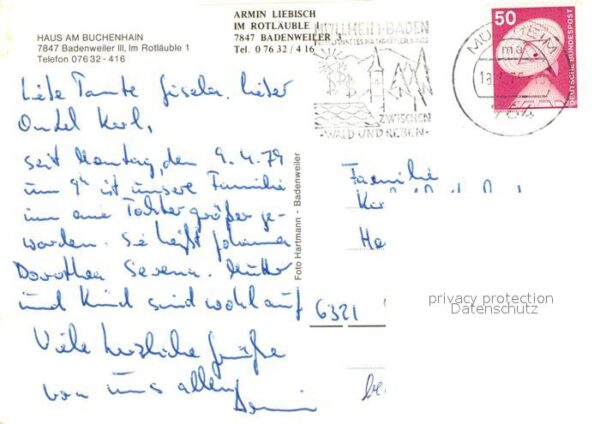 HAUS AM BUCHENHAIN
7847 Badenweiler III, Im Rotläuble 1
Telefon 07632 - 416
ARMIN LIEBISCH
IM ROTLÄUBLE 1
7847 BADENWEILER 3
Tel. 0 76 32 / 4 16
MÜLLHEIM-BADEN
ZWISCHEN
WALD UND REBEN
MÜLLHEIM
ma
50
DEUTSCHE BUNDESPOST
Liebe Tante Gisela, lieber
Onkel Karl,
seit Montag, den 9.4.79
um 9h ist unsere Familie
um eine Tochter größer ge-
worden. Sie heißt Johanna
Dorothea Severa. Mutter
und Kind sind wohlauf
Viele herzliche Grüße
von uns allen
Armin
Foto Hartmann - Badenweiler
Familie
6321
privacy protection
Datenschutz